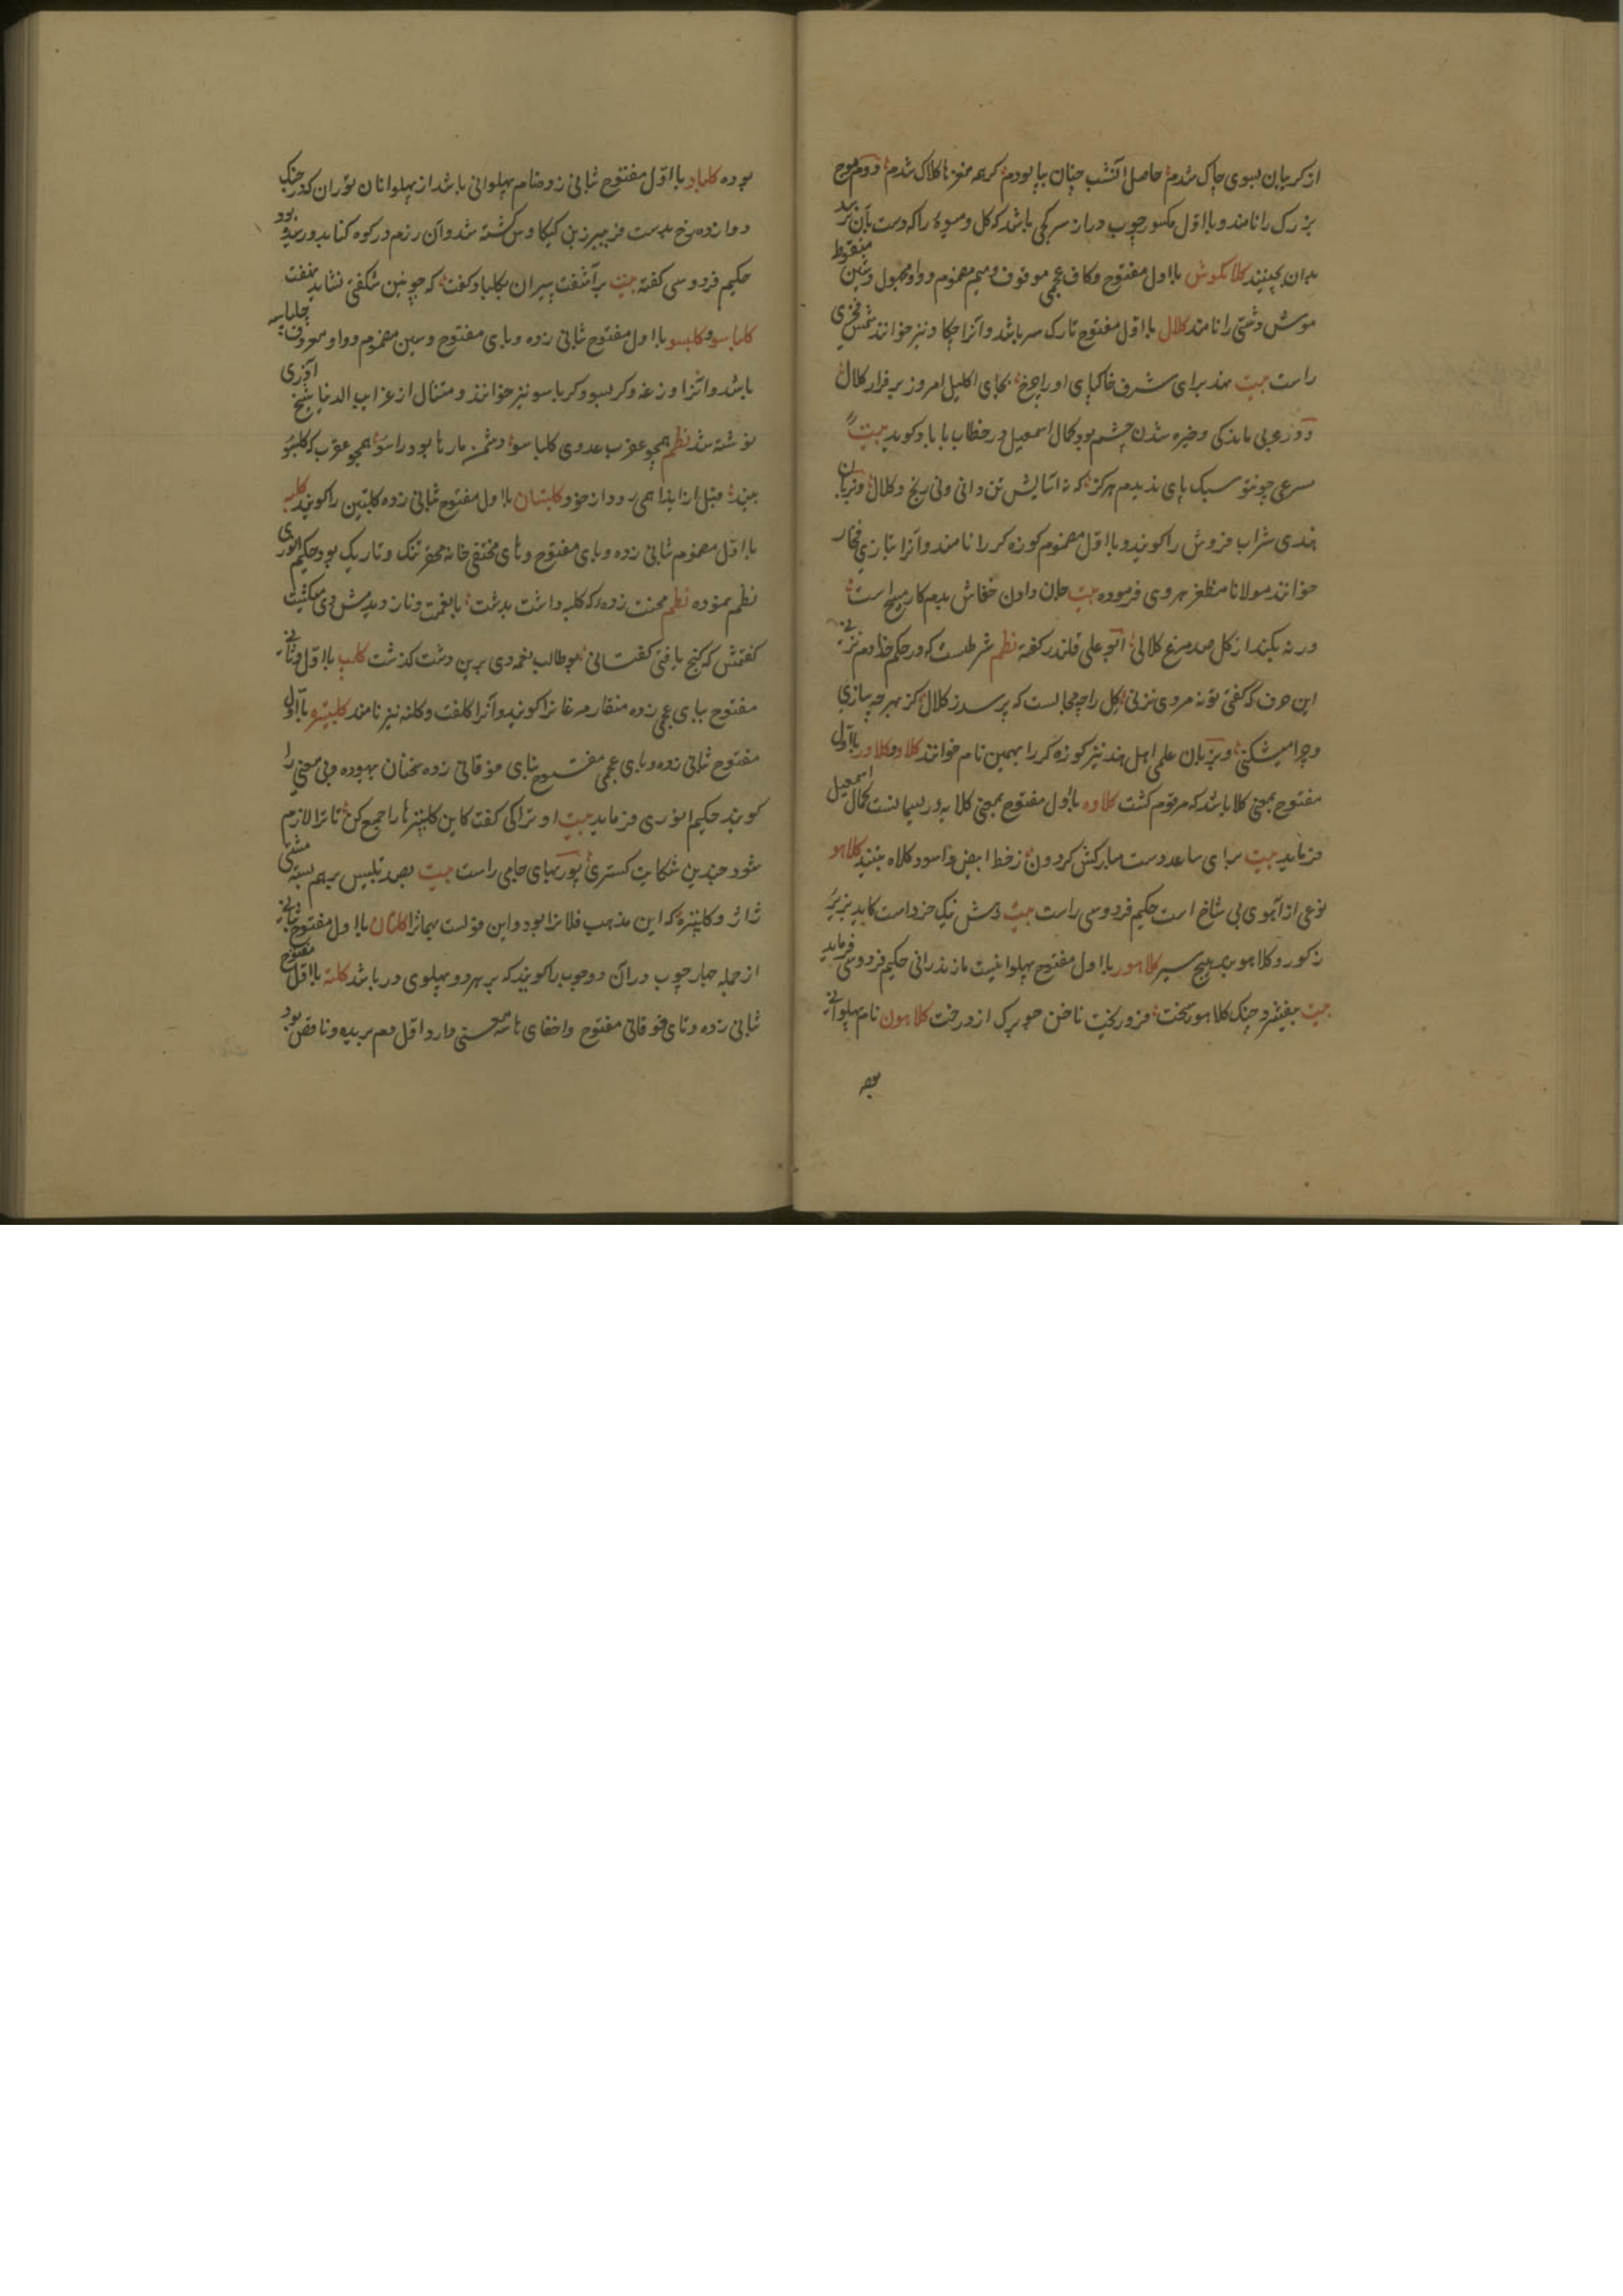 از کریبان بسوی چاک شدم حاصل آنشب چنان بپا بودم کرهه مغزها کلاک شدم دوم موج
بزرک را نامند و با اول مکسور چوب دراز سرکجی باشد که کل و میوهٔ را که دست بآن نرسد
بدان بچینند کلاکموش با اول مفتوح و کاف عجمی موقوف و میم مضموم و واو مجهول و شین منقوط
موش دشتی را نامند کلال با اول مفتوح تارک سر باشد و آنرا چکاد نیز خوانند شمس فخری
راست بیت نهد برای شرف خاکپای او را چرخ بجای اکلیل امروز بر فراز کلال
و در عربی ماندکی و خیره شدن چشم بود کمال اسمعیل در خطاب با باد کوید بیت
مسرعی چونتو سبک پای ندیدم هرکز که نه آسایش تن دانی و نی رنج و کلال و بزبان
هندی شراب فروش را کویند و با اول مضموم کوزه کر را نامند و آنرا بتازی فخار
خوانند مولانا مظفر هروی فرموده بیت جان دادن خفاش بدم کار مسیح است
ورنه بکند از کل صد مرغ کلالی بو علی قلندر کفته نظم شرطست که در حکم خدا دم نزنی
این حرف که کفتی تو نه مردی نه زنی کل را چه مجالست که پرسد ز کلال کز بهر چه سازی
و چرا میشکنی و بزبان علمی اهل هند نیز کوزه کر را بهمین نام خوانند کلاو و کلاور با اول
مفتوح بمعنی کلا باشد که مرقوم کشت کلاوه با اول مفتوح بمعنی کلابه و ریسمانست کمال اسمعیل
فرماید بیت برای ساعد دست مبارکش کردون ز خط ابیض و اسود کلاوه بنبند کلاهو
نوعی از آهوی بی شاخ است حکیم فردوسی راست بیت دمش نیک خرداست کاید بزیر
ز کور و کلاهو بد هیچ سیر کلاهور با اول مفتوح پهلوانیست مازندرانی حکیم فردوسی فرماید
بیت بیفشرد چنک کلاهور سخت فرو ریخت ناخن چو برک از درخت کلاهون نام پهلوانی
بوده
بوده کلباد با اول مفتوح ثانی زده نام پهلوانی باشد از پهلوانان توران که در جنک
دوازده رخ بدست فریبرز بن کیکاوس کشته شد و آن رزم در کوه کنابد و ریبد بود
حکیم فردوسی کفته بیت برآشفت پیران بکلباد کفت که چونین شکفتی نشاید نهفت
کلباسو و کلبسو با اول مفتوح ثانی زده و بای مفتوح و سین مضموم و واو معروف چلپاسه
باشد و آنرا وزغه و کربسو و کرباسو نیز خوانند و مثال از غرایب الدنیا شیخ آذری
نوشته شد نظم همچو عقرب عدوی کلباسو دشمن مارها بود راسو همچو عقرب که کلبسو
بیند قبل از ایذا همی رود از خود کلبتان با اول مفتوح ثانی زده کلبتین را کویند کلبه
با اول مضموم ثانی زده و بای مفتوح و های مختفی خانه محقر تنک و تاریک بود حکیم انوری
نظم نموده نظم محنت زدهٔ که کلبه داشت بدشت با نعمت و ناز دیدمش دی میکشت
کفتمش که کنج یافتی کفتا نی بو طالب نعمه دی برین دشت کذشت کلب با اول و ثانی
مفتوح ببای عجمی زده منقار مرغان را کویند و آنرا کلفت و کلته نیز نامند کلپتره با اول
مفتوح ثانی زده و بای عجمی مفتوح بتای فوقانی زده سخنان بیهوده و بی معنی را
کویند حکیم انوری فرماید بیت او ترا کی کفت کاین کلپترها را جمع کن تا ترا لازم
شود چندین شکایت کستری پور بهای جامی راست بیت بصد تلبیس برهم بسته مشتی
ژاژ و کلپتره که این مذهب فلانرا بود و این قولست بهمانرا کلتان با اول مفتوح ثانی
از جمله چهار چوب در آن دو چوب را کویند که بر هر دو پهلوی در باشد کلته با اول مفتوح
ثانی زده و تای فوقانی مفتوح و اخفای ها سه معنی دارد اول دم بریده و ناقص بود